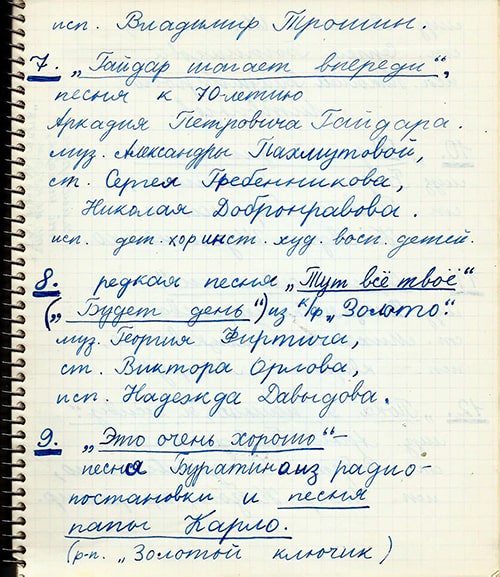 исп. Владимир Трошин.
7. „Гайдар шагает впереди“,
песня к 70-летию
Аркадия Петровича Гайдара.
муз. Александры Пахмутовой,
ст. Сергея Гребенникова,
Николая Добронравова.
исп. дет. хор инст. худ. восп. детей.
8. редкая песня „Тут всё твоё“
(„Будет день“) из к/ф „Золото“.
муз. Георгия Фиртича,
ст. Виктора Орлова,
исп. Надежда Давыдова.
9. „Это очень хорошо“ –
песня Буратино из радио-
постановки и песня
папы Карло.
(р-п. „Золотой ключик)